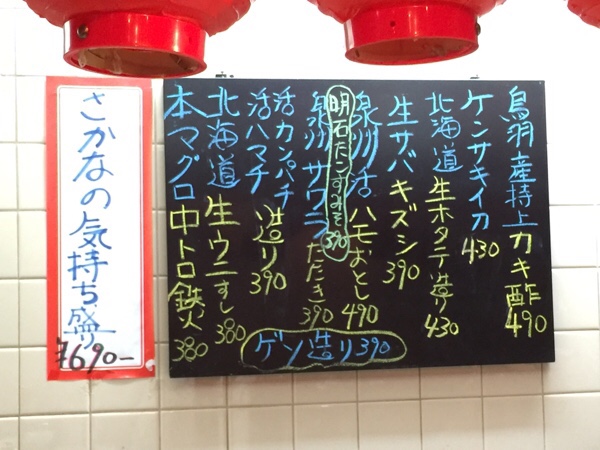 鳥羽産特上カキ酢490
ケンサキイカ430
北海道生ホタテ造り430
生サバキズシ390
泉州活ハモおとし490
明石たこすみそ390
泉州サワラたたき390
活カンパチ
活ハマチ
造り390
北海道生ウニすし380
本マグロ中トロ鉄火380
ゲソ造り390
さかなの気持ち盛り
¥690-